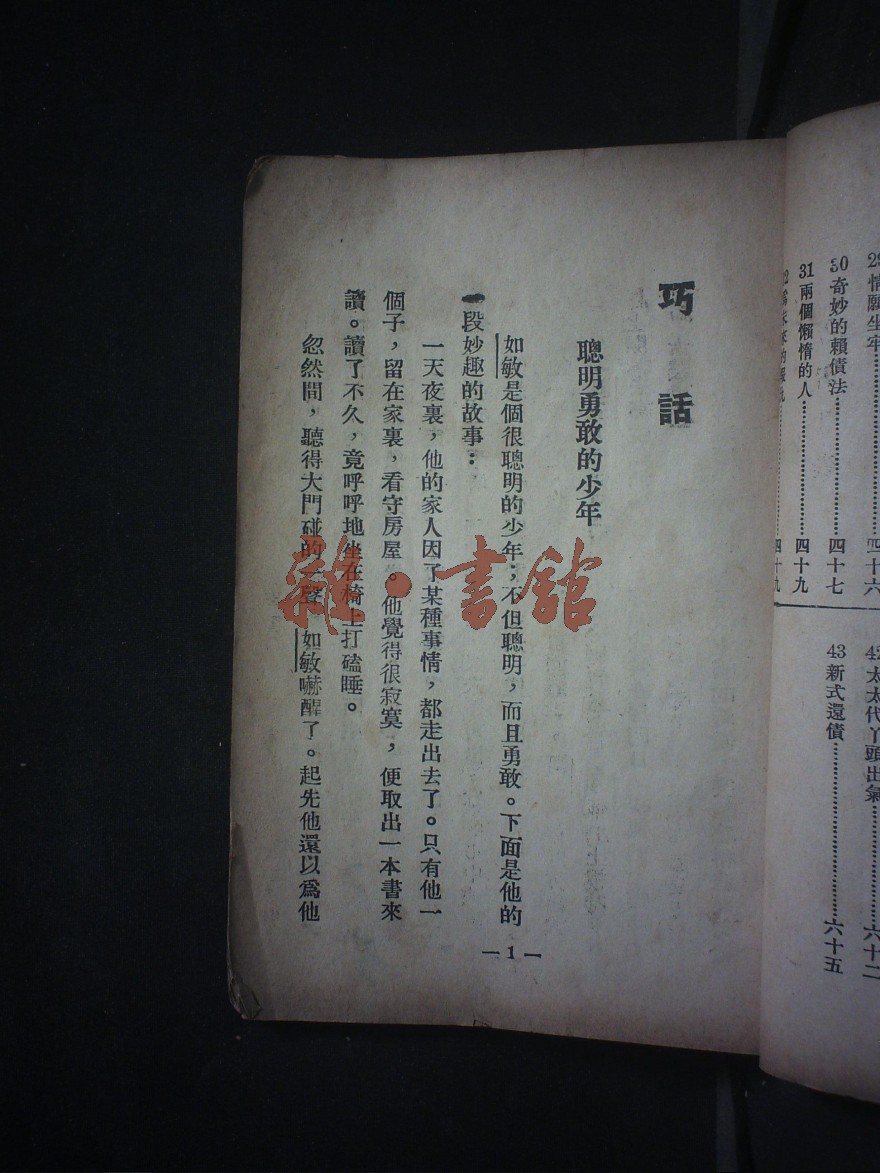 29情願坐牢……四十六
30奇妙的賴債法……四十七
31兩個懶惰的人……四十九
四十九
42太太代丫頭出氣……六十二
43新式還債……六十五
巧話
聰明勇敢的少年
如敏是個很聰明的少年；不但聰明，而且勇敢。下面是他的
一段妙趣的故事：
一天夜裏，他的家人因了某種事情，都走出去了。只有他一
個子，留在家裏，看守房屋。他覺得很寂寞，便取出一本書來
讀。讀了不久，竟呼呼地坐在椅上打磕睡。
忽然間，聽得大門碰的一聲，如敏嚇醒了。起先他還以爲他
—1—
雜·書館